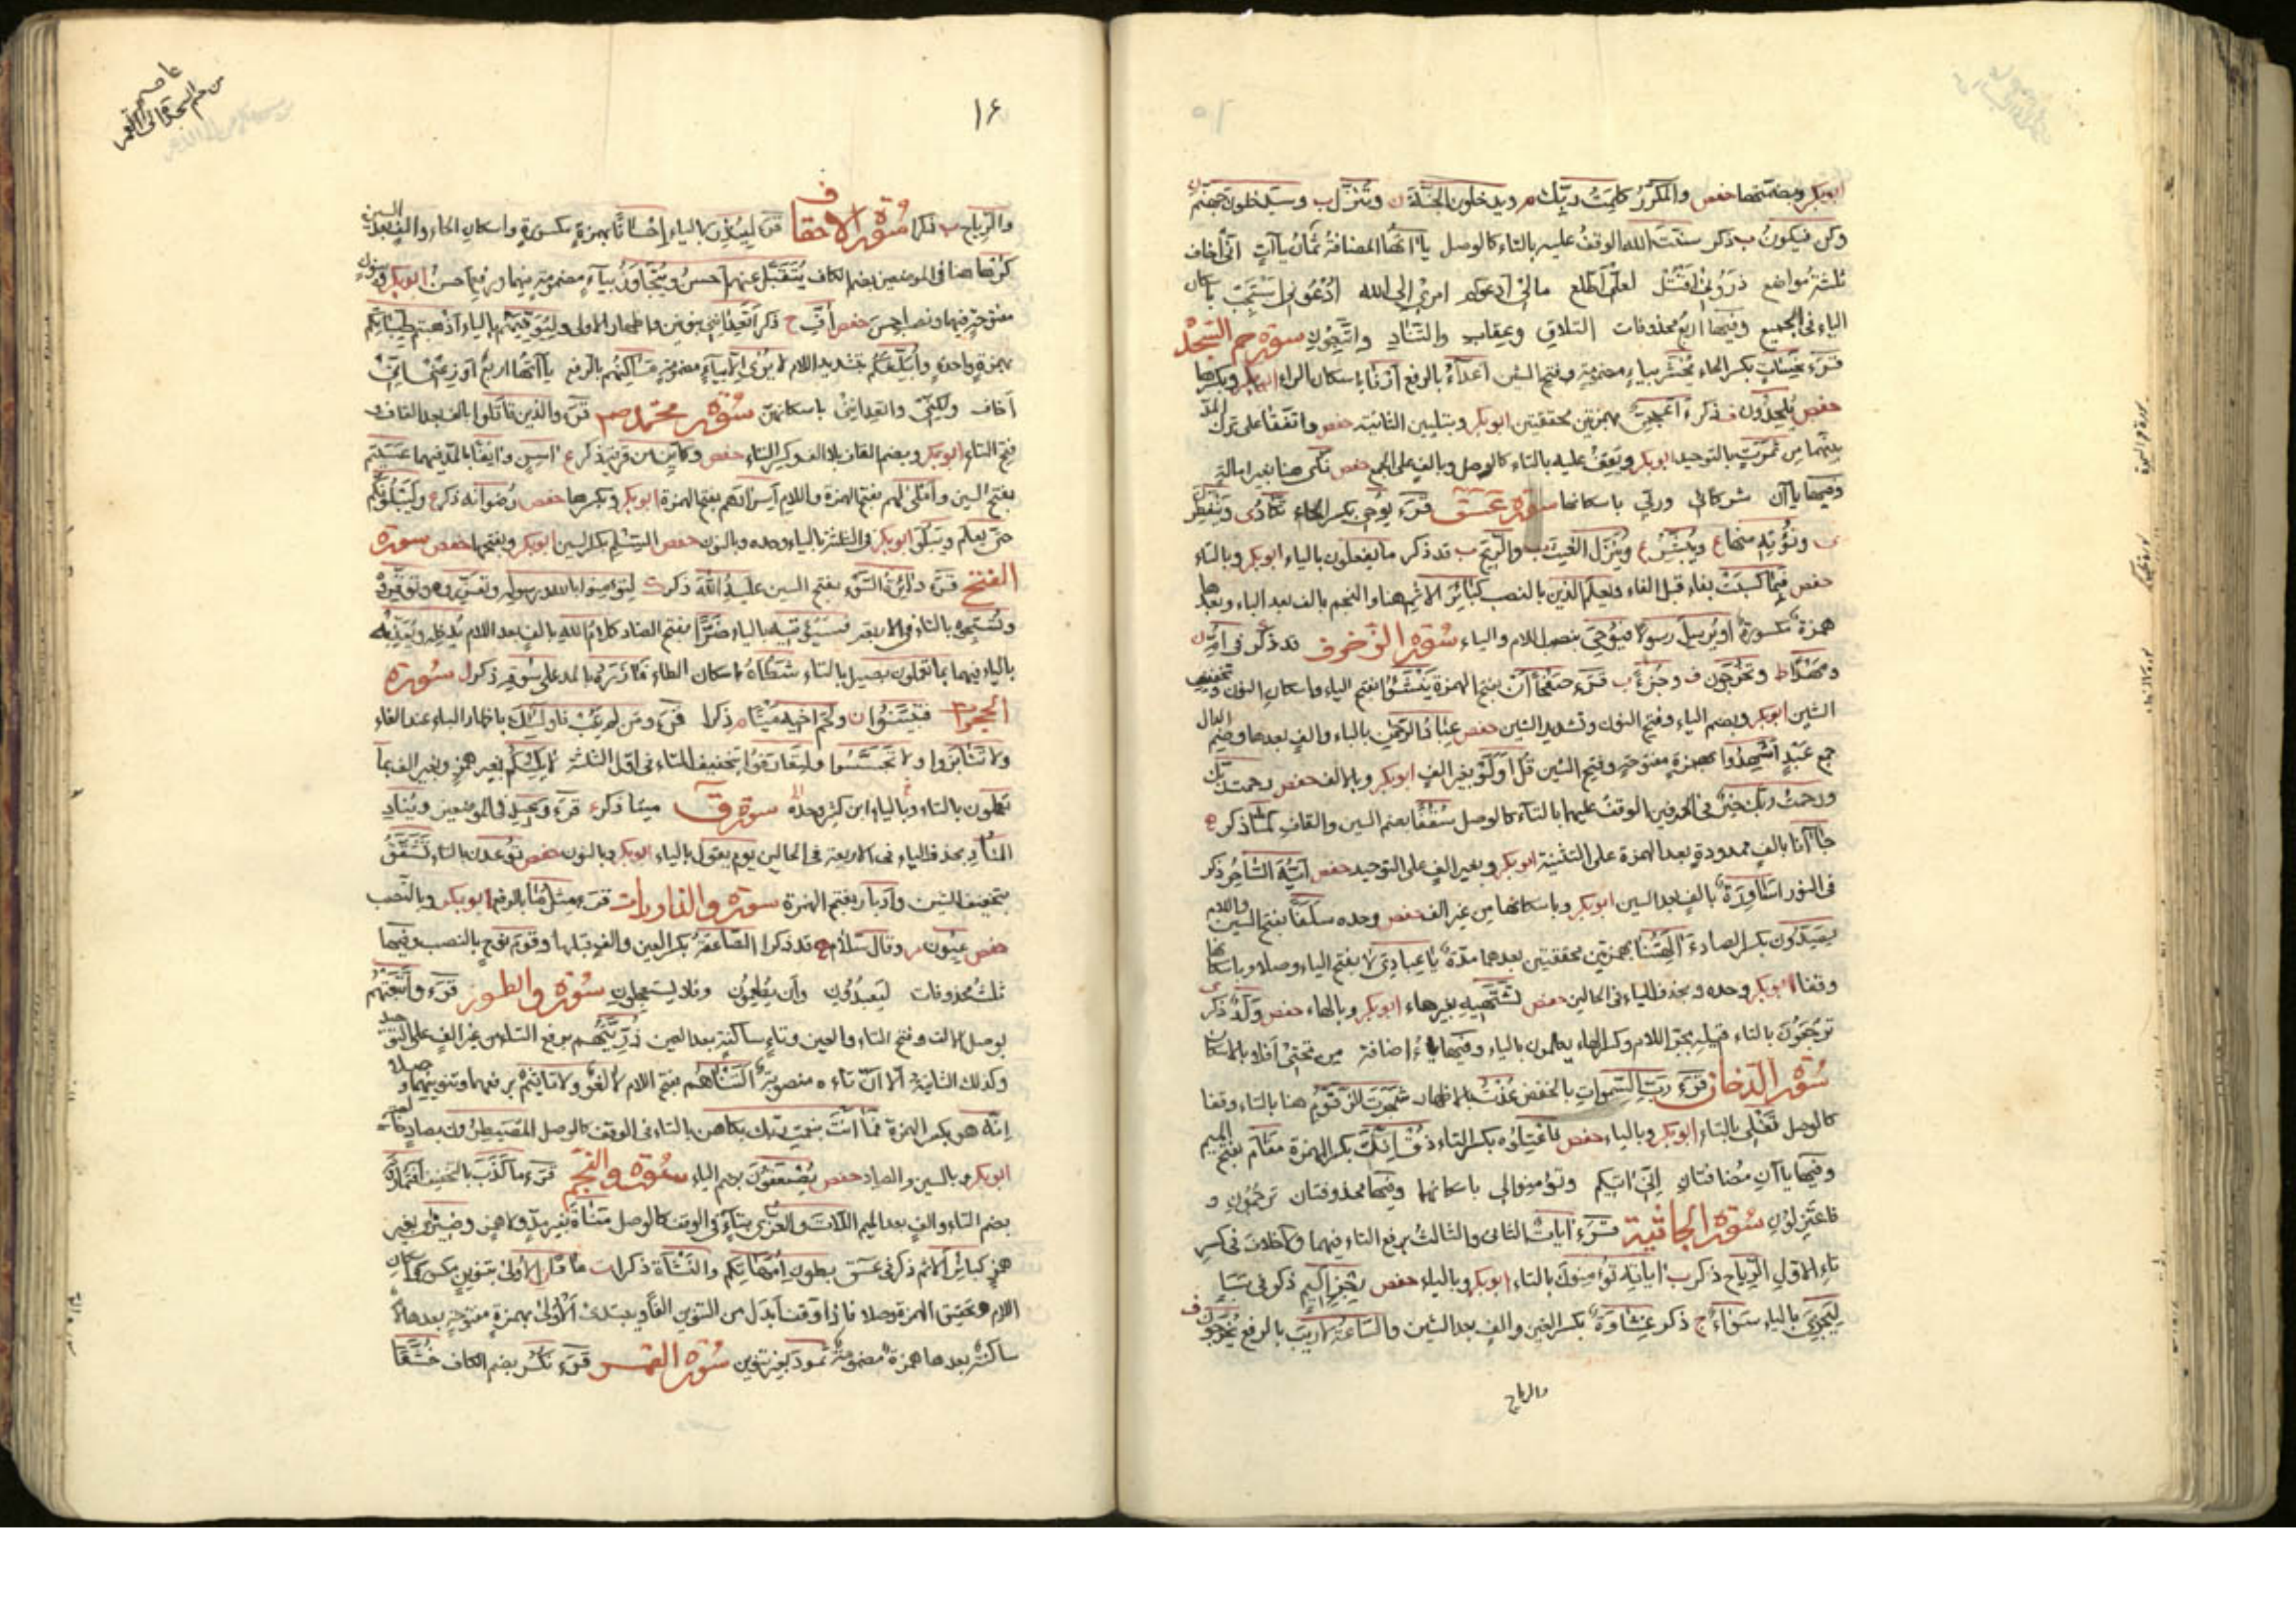 ابوبكر وبضمتها حفص والمكرر كلمت ربك م ويدخلون الجنة ن وتنزل ب وسيدخلون جهنم
وكن فيكون ب ذكر سنت الله الوقف عليه بالتاء كالوصل ياآتها المضافة ثمان ياآت انى اخاف
ثلثة مواضع ذرونى اقتل لعلى اطلع مالى ادعوكم امرى الى الله ادعونى استجب باسكان
الياء فى الجميع وفيها اربع محذوفات التلاق وعقاب والتناد واتبعون سورة حم السجدة
قرء نحسات بكسر الحاء يحشر بياء مضمومة وفتح الشين اعداء بالرفع ارنا باسكان الراء ابوبكر وبكسرها
حفص يلحدون ف ذكر ءاعجمى بهمزتين محققتين ابوبكر وبتليين الثانية حفص واتفقا على ترك المد
بينهما من ثمرت بالتوحيد ابوبكر ويقف عليه بالتاء كالوصل وبالف على الجمع حفص نأى هنا بغير امالة
وفيها ياآن شركائى وربى باسكانها سورة عسق قرء يوحى بكسر الحاء تكاد ى وينفطرن
ى ونؤته منها ع ويبشر ع وينزل الغيث ب والريح ب قد ذكر ما يفعلون بالياء ابوبكر وبالتاء
حفص فبما كسبت بفاء قبل الباء ويعلم الذين بالنصب كبائر الاثم هنا والنجم بالف بعد الباء وبعدها
همزة مكسورة او يرسل رسولا فيوحى بنصب اللام والياء سورة الزخرف قد ذكر فى ام ن
ومهدا ط وتخرجون ف وجزءا ب قرء صفحا ان بفتح الهمزة ينشؤا بفتح الياء واسكان النون وتخفيف
الشين ابوبكر وبضم الياء وفتح النون وتشديد الشين حفص عباد الرحمن بالباء والف بعدها وضم الدال
جمع عبد اشهدوا بهمزة مفتوحة وفتح الشين قل اولو بغير الف ابوبكر وبالالف حفص رحمت ربك
ورحمت ربك خير فى الحرفين الوقف عليهما بالتاء كالوصل سقفا بضم السين والقاف لما ذكر ه
جاآنا بالف ممدودة بعد الهمزة على التثنية ابوبكر وبغير الف على التوحيد حفص ايه الساحر ذكر
فى النور اساورة بالف بعد السين ابوبكر وباسكانها من غير الف حفص وحده سلفا بفتح السين واللام
يصدون بكسر الصاد ءالهتنا بهمزتين محققتين بعدهما مدة يا عبادى لا بفتح الياء وصلا وباسكانها
وقفا ابوبكر وحده وبحذف الياء فى الحالين حفص تشتهيه بغير هاء ابوبكر وبالهاء حفص ولد ذكر
ترجعون بالتاء قيله بجر اللام وكسر الهاء يعلمون بالياء وفيها ياء اضافة من تحتى افلا بالاسكان
سورة الدخان قرء رب السموات بالخفض عذت بالاظهار شجرت الزقوم هنا بالتاء وقفا
كالوصل تغلى بالتاء ابوبكر وبالياء حفص فاعتلوه بكسر التاء ذق انك بكسر الهمزة مقام بفتح الميم
وفيها ياآن مضافتان انى اتيكم وتؤمنوا لى باسكانهما وفيها محذوفتان ترجمون و
فاعتزلون سورة الجاثية قرء ايات الثانى والثالث برفع التاء فيهما ولا خلاف فى كسر
تاء الاول الرياح ذكر ب اياته تؤمنون بالتاء ابوبكر وبالياء حفص رجز اليم ذكر فى سبا
ليجزى بالياء سواء ج ذكر غشاوة بكسر الغين والف بعد الشين والساعة لا ريب بالرفع يخرجون ف
والرياح
١٤
عاصم
من حم السجدة الى القمر
والرياح ب ذكرا سورة الاحقاف قرء لينذر بالياء احسانا بهمزة مكسورة واسكان الحاء والف بعد السين
كرها هنا فى الموضعين بضم الكاف يتقبل عنهم احسن ويتجاوز بياء مضمومة فيهما ورفع احسن ابوبكر وبنون
مفتوحة فيهما ونصب احسن حفص اف ح ذكر اتعداننى بنونين واظهار الاولى وليوفيهم بالياء اذهبتم طيباتكم
بهمزة واحدة وابلغكم بتشديد اللام لا يرى الا بياء مضمومة مساكنهم بالرفع ياآتها اربع اوزعنى انى
اخاف ولكنى واتعداننى باسكانهن سورة محمد صم قرء والذين قاتلوا بالف بعد القاف و
فتح التاء ابوبكر وبضم القاف بلا الف وكسر التاء حفص وكاين من قرية ذكر ع اسن وانفا بالمد فيهما عسيتم
بفتح السين واملى لهم بفتح الهمزة واللام اسرارهم بفتح الهمزة ابوبكر وبكسرها حفص رضوانه ذكر ع وليبلونكم
حتى يعلم ويبلو ابوبكر فى الثلثة بالياء وحده وبالنون حفص السلم بكسر السين ابوبكر وبفتحها حفص سورة
الفتح قرء دائرة السوء بفتح السين عليه الله ذكر لتؤمنوا بالله ورسوله وتعزروه وتوقروه
وتسبحوه بالتاء فى الاربعة فسيؤتيه بالياء ضرا بفتح الضاد كلام الله بالف بعد اللام يدخله ويعذبه
بالياء فيهما بما تعملون بصيرا بالتاء شطأه باسكان الطاء فآزره بالمد على سوقه ذكر ل سورة
الحجرات فتبينوا ن ولحم اخيه ميتا م ذكرا قرء ومن لم يتب فاولئك باظهار الباء عند الفاء
ولا تنابزوا ولا تجسسوا ولتعارفوا بتخفيف التاء فى اول الثلثة لا يلتكم بغير همز وبغير الف بما
تعملون بالتاء وبالياء ابن كثير وحده سورة ق ميتا ذكر ع قرء وعيد فى الموضعين ويناد
المناد بحذف الياء فى الاربعة فى الحالين يوم يقول بالياء ابوبكر وبالنون حفص توعدون بالتاء تشقق
بتخفيف الشين وادبار بفتح الهمزة سورة والذاريات قرء مثل ما بالرفع ابوبكر وبالنصب
حفص عيون م وقال سلام ه قد ذكرا الصاعقة بكسر العين والف قبلها وقوم نوح بالنصب وفيها
ثلث محذوفات ليعبدون وان يطعمون وفلا يستعجلون سورة والطور قرء واتبعتهم
بوصل الالف وفتح التاء والعين وتاء ساكنة بعد العين ذريتهم برفع التاء من غير الف على التوحيد
وكذلك الثانية الا ان تاءه منصوبة التناهم بفتح اللام لا لغو ولا تاثيم برفعهما وتنوينهما وصلا
انه هو بكسر الهمزة فما انت بنعمت ربك بكاهن بالتاء فى الوقف كالوصل المصيطرون بصاد خالصة
ابوبكر وبالسين والصاد حفص يصعقون بضم الياء سورة والنجم قرء ما كذب بالتخفيف افتمارونه
بضم التاء والف بعد الميم اللات والعزى بتاء فى الوقف كالوصل مناة بغير مد ولا همز وضيزى بغير
همز كبائر الاثم ذكر فى عسق بطون امهاتكم والنشأة ذكرا ت عادا الاولى بتنوين مكسور واسكان
اللام وتحقيق الهمزة وصلا فاذا وقف ابدل من التنوين الفا ويبتدئ الاولى بهمزة مفتوحة بعدها لام
ساكنة بعدها همزة مضمومة ثمود بغير تنوين سورة القمر قرء نكر بضم الكاف خشعا